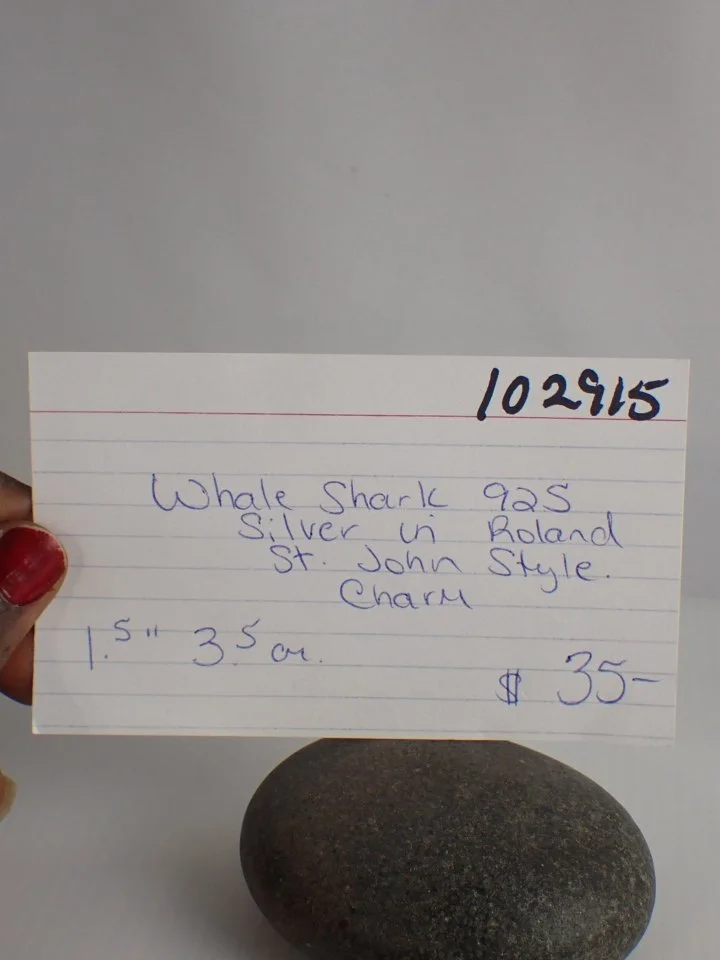 102915
Whale Shark 925
Silver in Roland
St. John Style.
Charm
1.5" 3.5 cm.
$ 35-